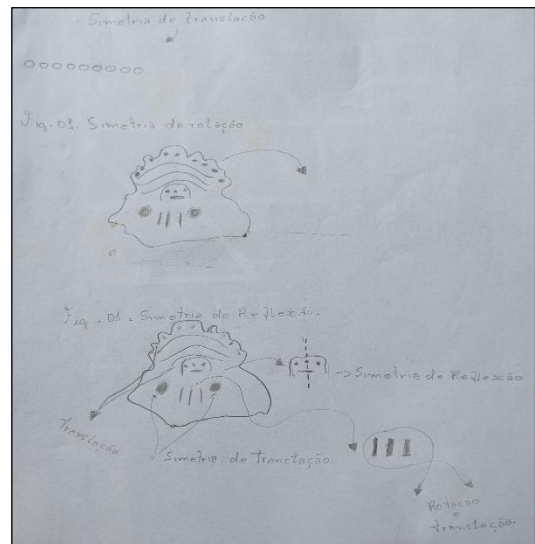 . Simetria de translação
Fig. 01. Simetria de rotação
Fig. 01. Simetria de Reflexão.
-> Simetria de Reflexão
Translação
Simetria de Translação
Rotação
e
translação.